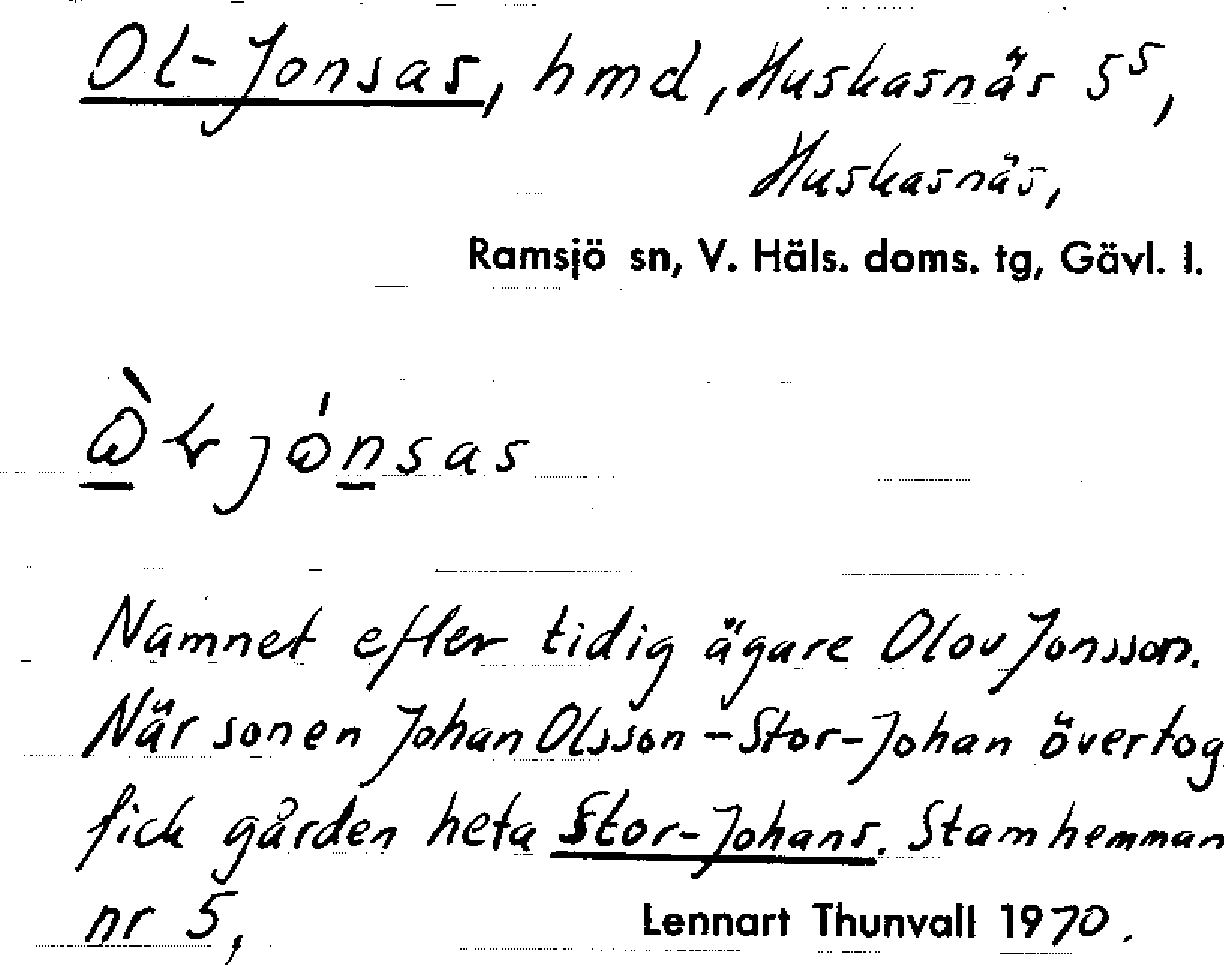 Ol-Jonsas, hmd, Huskasnäs 5⁵,
Huskasnäs,
Ramsjö sn, V. Häls. doms. tg, Gävl. l.
jònsas
Namnet efter tidig ägare Olov Jonsson.
När sonen Johan Olsson – Stor-Johan övertog
fick gården heta Stor-Johans. Stamhemman
nr 5,
Lennart Thunvall 1970.